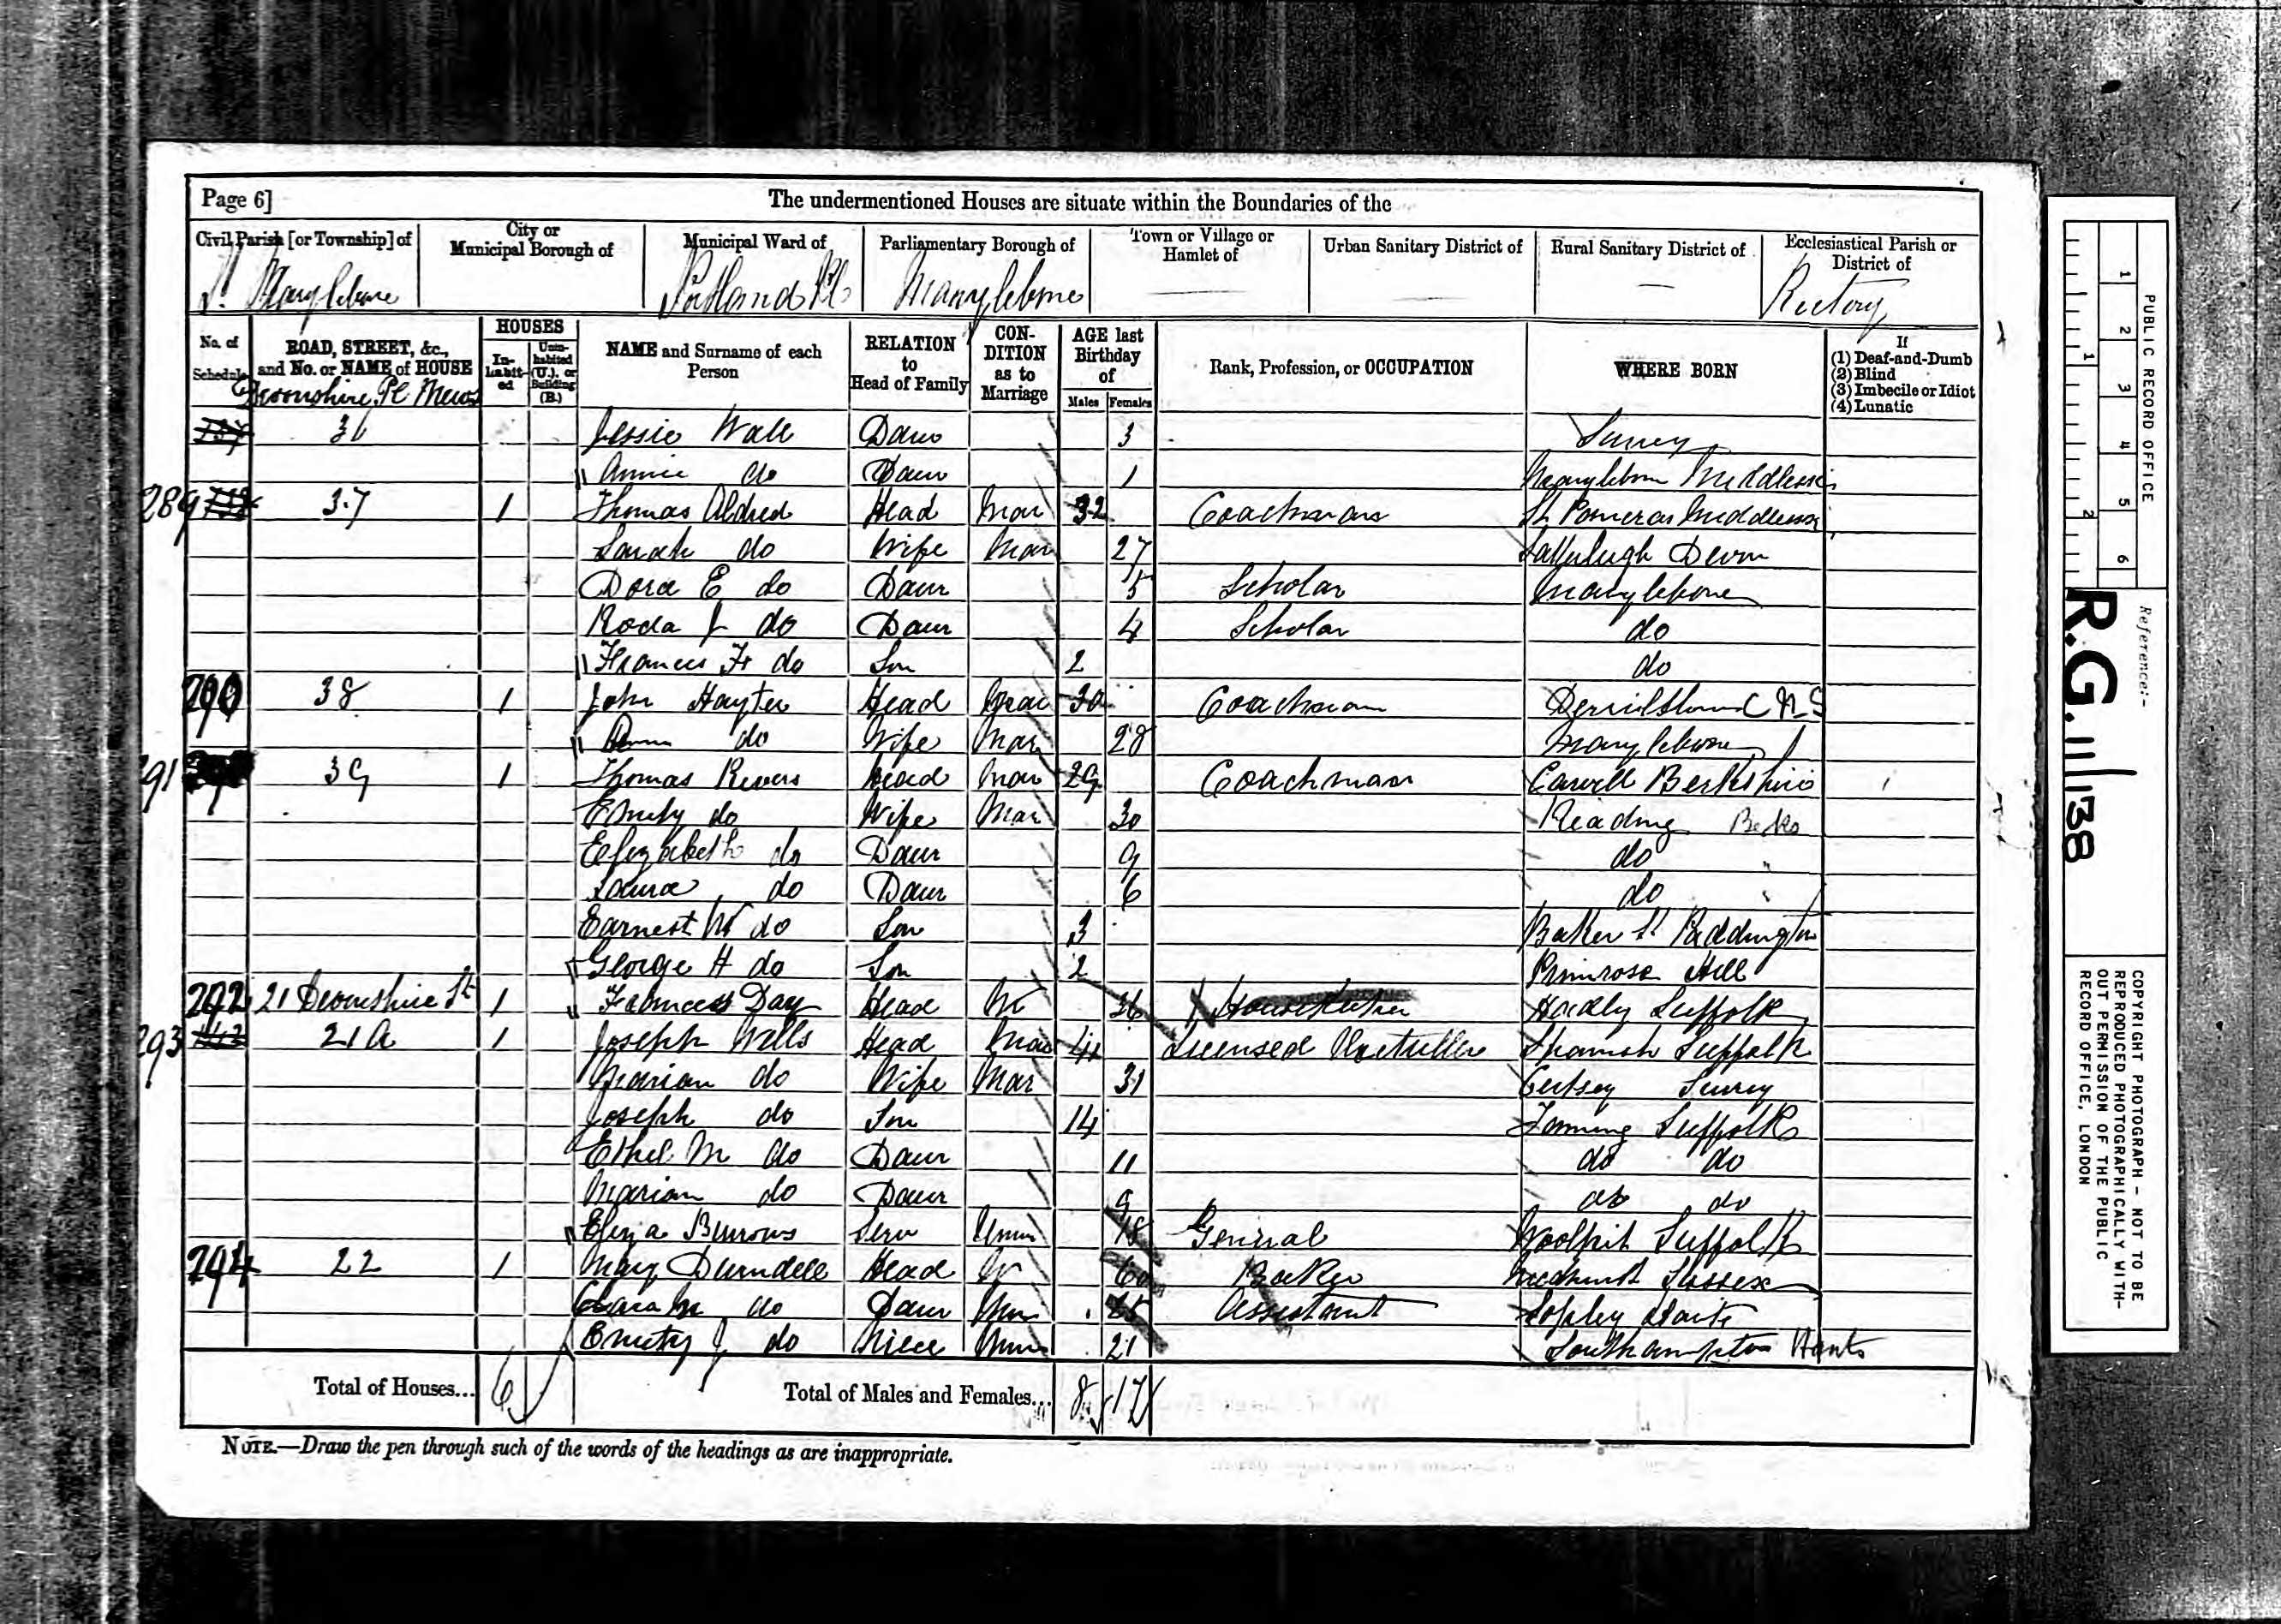 Page 6]
The undermentioned Houses are situate within the Boundaries of the
Civil Parish [or Township] of
City or Municipal Borough of
Municipal Ward of
Parliamentary Borough of
Town or Village or Hamlet of
Urban Sanitary District of
Rural Sanitary District of
Ecclesiastical Parish or District of
St Marylebone Portland Pl Marylebone Rectory
No. of Schedule
ROAD, STREET, &c., and No. or NAME of HOUSE
HOUSES
In-habit-ed
Unin-habited (U.), or Building (B.)
NAME and Surname of each Person
RELATION to Head of Family
CON-DITION as to Marriage
AGE last Birthday of
Males Females
Rank, Profession, or OCCUPATION
WHERE BORN
If
(1) Deaf-and-Dumb
(2) Blind
(3) Imbecile or Idiot
(4) Lunatic
Devonshire Pl Mews
36 Jessie Wall Daur 3 Surrey
Annie do Daur 1 Marylebone Middlesex
289 37 1 Thomas Aldred Head Mar 32 Coachman St Pancras Middlesex
Sarah do Wife Mar 27 Devon
Dora E do Daur 5 Scholar Marylebone
Roda J do Daur 4 Scholar do
Frances F do Son 2 do
290 38 1 John Hayter Head Mar 30 Coachman
Ann do Wife Mar 28 Marylebone
291 39 1 Thomas Rivers Head Mar 29 Coachman Berkshire
Emily do Wife Mar 30 Reading Berks
Elizabeth do Daur 9 do "
Laura do Daur 6 do "
Earnest W do Son 3 Baker St Paddington
George H do Son 2 Primrose Hill
292 21 Devonshire St 1 Frances Day Head W 36 Housekeeper Hadly Suffolk
293 21A 1 Joseph Wells Head Mar 41 Licensed Victuller Suffolk
Marian do Wife Mar 31 Surrey
Joseph do Son 14 Suffolk
Ethel M do Daur 11 do do
Marian do Daur 9 do do
Eliza Burrows Serv Unm 18 General Woolpit Suffolk
294 22 1 Mary Durndell Head W 60 Baker Sussex
Clara M do Daur Unm 25 Assistant Sopley Hants
Emily J do Niece Unm 21 Southampton Hants
Total of Houses... 6
Total of Males and Females... 8 17
NOTE.—Draw the pen through such of the words of the headings as are inappropriate.
1 2 3 4 5 6
1 2
PUBLIC RECORD OFFICE
Reference:-
R.G. 11/138
COPYRIGHT PHOTOGRAPH - NOT TO BE
REPRODUCED PHOTOGRAPHICALLY WITH-
OUT PERMISSION OF THE PUBLIC
RECORD OFFICE, LONDON